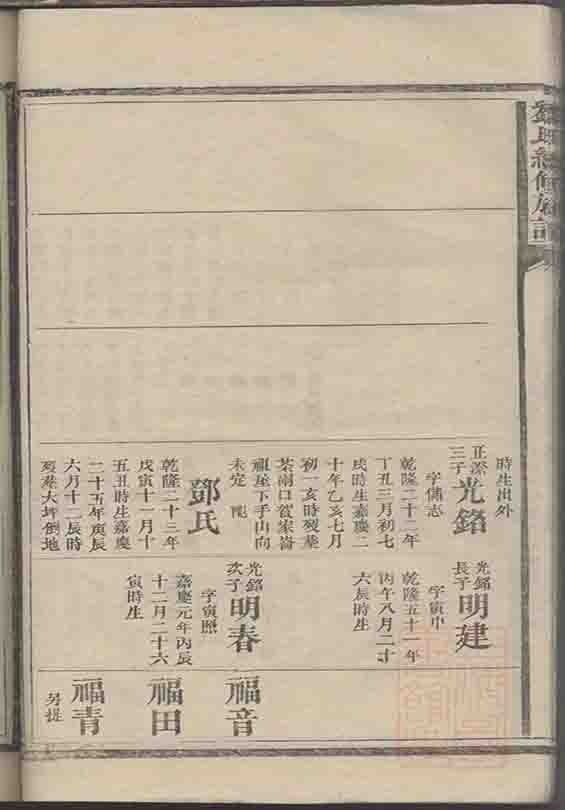 氏續修族譜
時生出外
正濴三子
光銘
字備志
乾隆二十二年
丁丑三月初七
戌時生嘉慶二
十年乙亥七月
初一亥時歿葬
茶兩口賀家崙
祖屋下手山向
未定 配
鄧氏
乾隆二十三年
戊寅十一月十
五丑時生嘉慶
二十五年庚辰
六月十二辰時
歿葬大坪倒地
光銘長子
明建
字寅中
乾隆五十一年
丙午八月二十
六辰時生
光銘次子
明春
字寅照
嘉慶元年丙辰
十二月二十六
寅時生
福音
福田
福青
另提